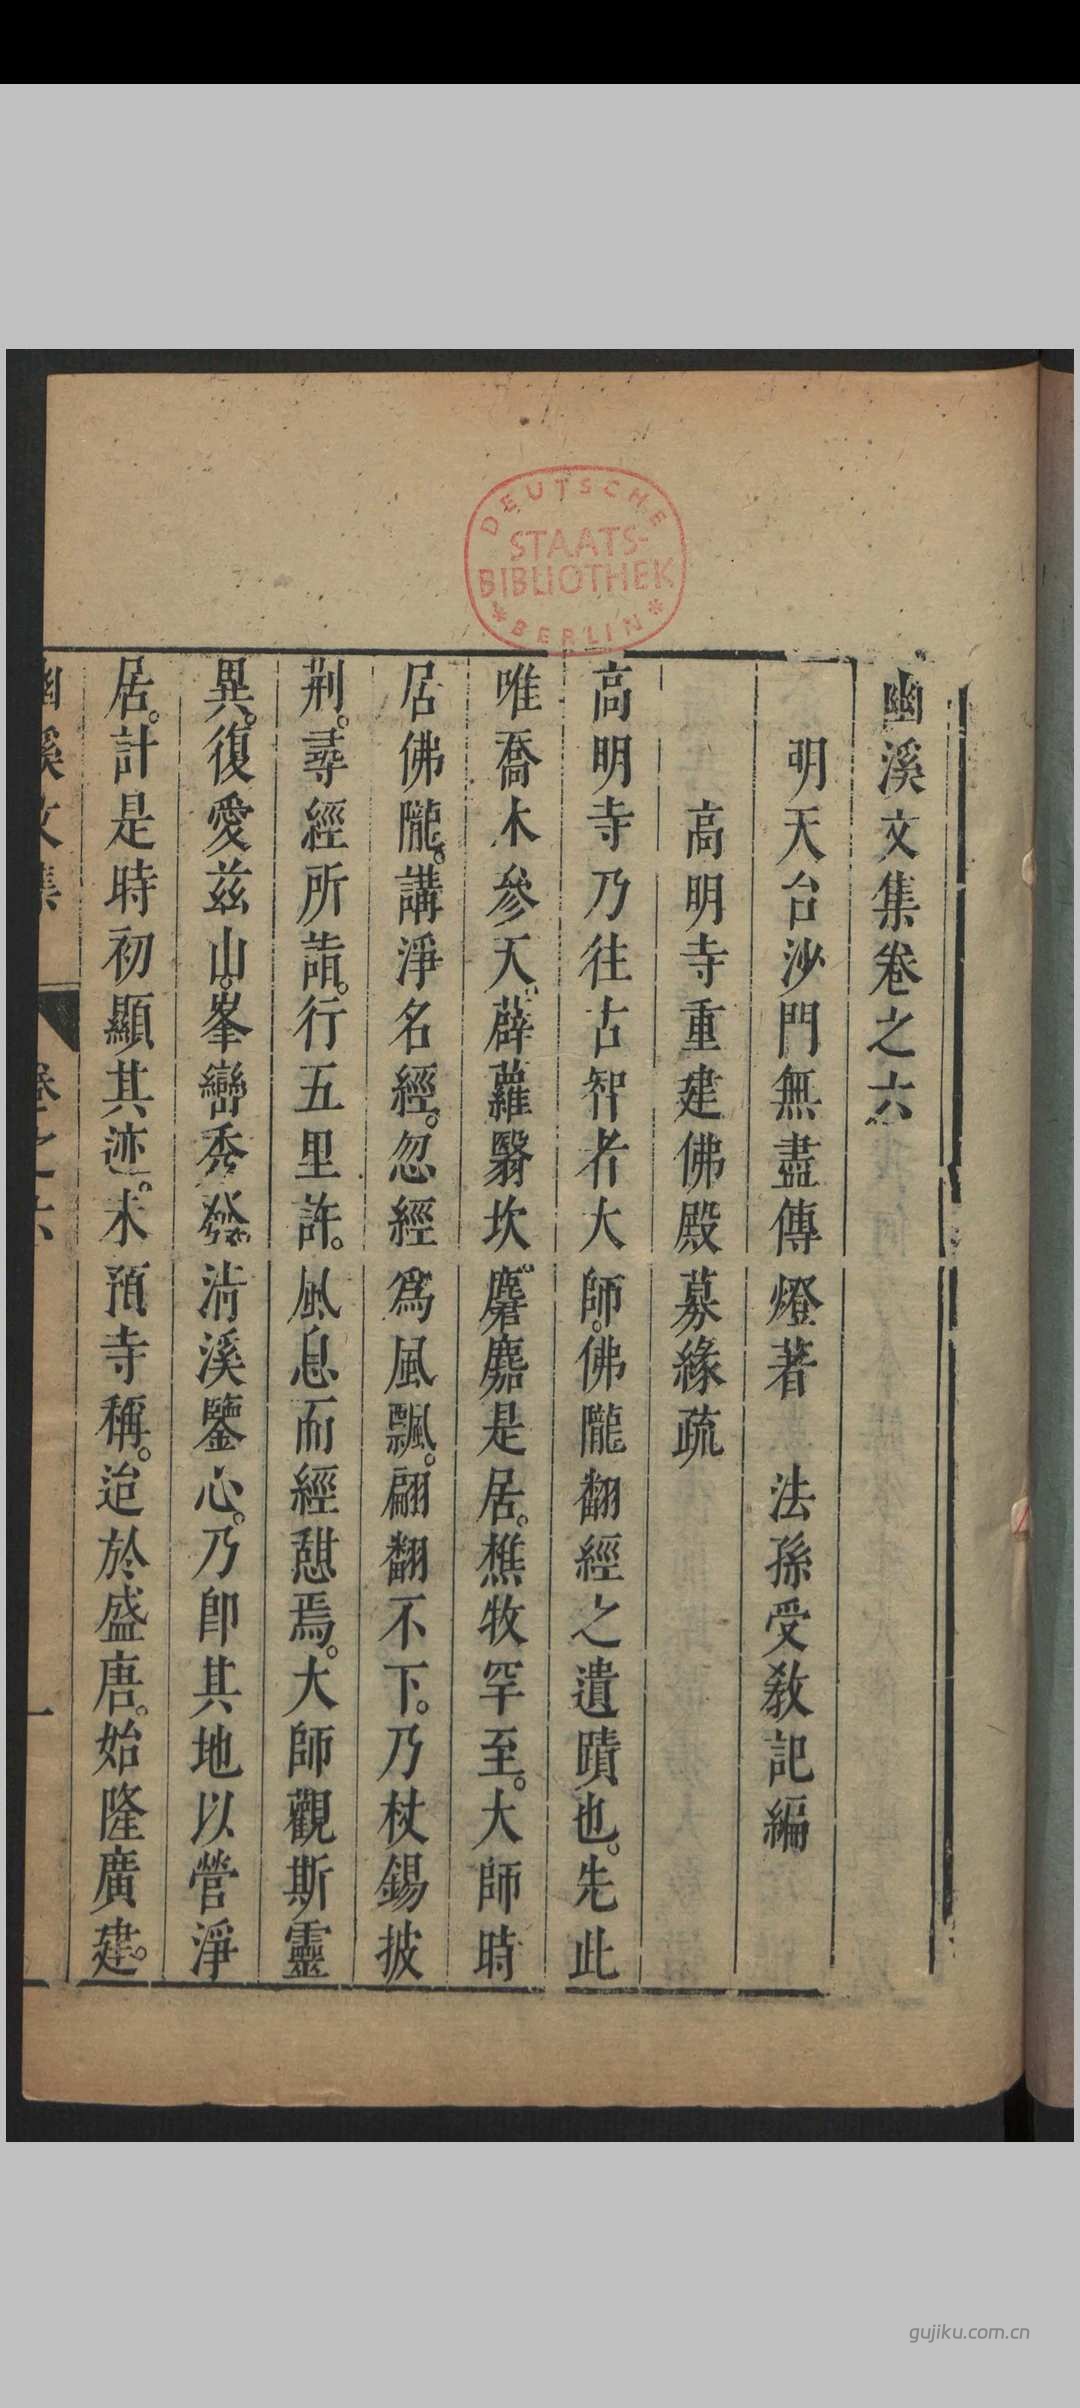 DEUTSCHE
STAATS-
BIBLIOTHEK
* BERLIN *
幽溪文集卷之六
明天台沙門無盡傳燈著 法孫受敎記編
高明寺重建佛殿募緣疏
高明寺乃往古智者大師。佛隴翻經之遺蹟也。先此
唯喬木參天。薜蘿翳坎。麏麚是居。樵牧罕至。大師時
居佛隴。講淨名經。忽經爲風飄。翩翻不下。乃杖錫披
荆。尋經所詣。行五里許。風息而經憇焉。大師觀斯靈
異。復愛兹山。峯巒秀發。淸溪鑒心。乃卽其地以營淨
居。計是時初顯其迹。未預寺稱。迨於盛唐。始隆廣建。
幽溪文集 卷之六 一
gujiku.com.cn